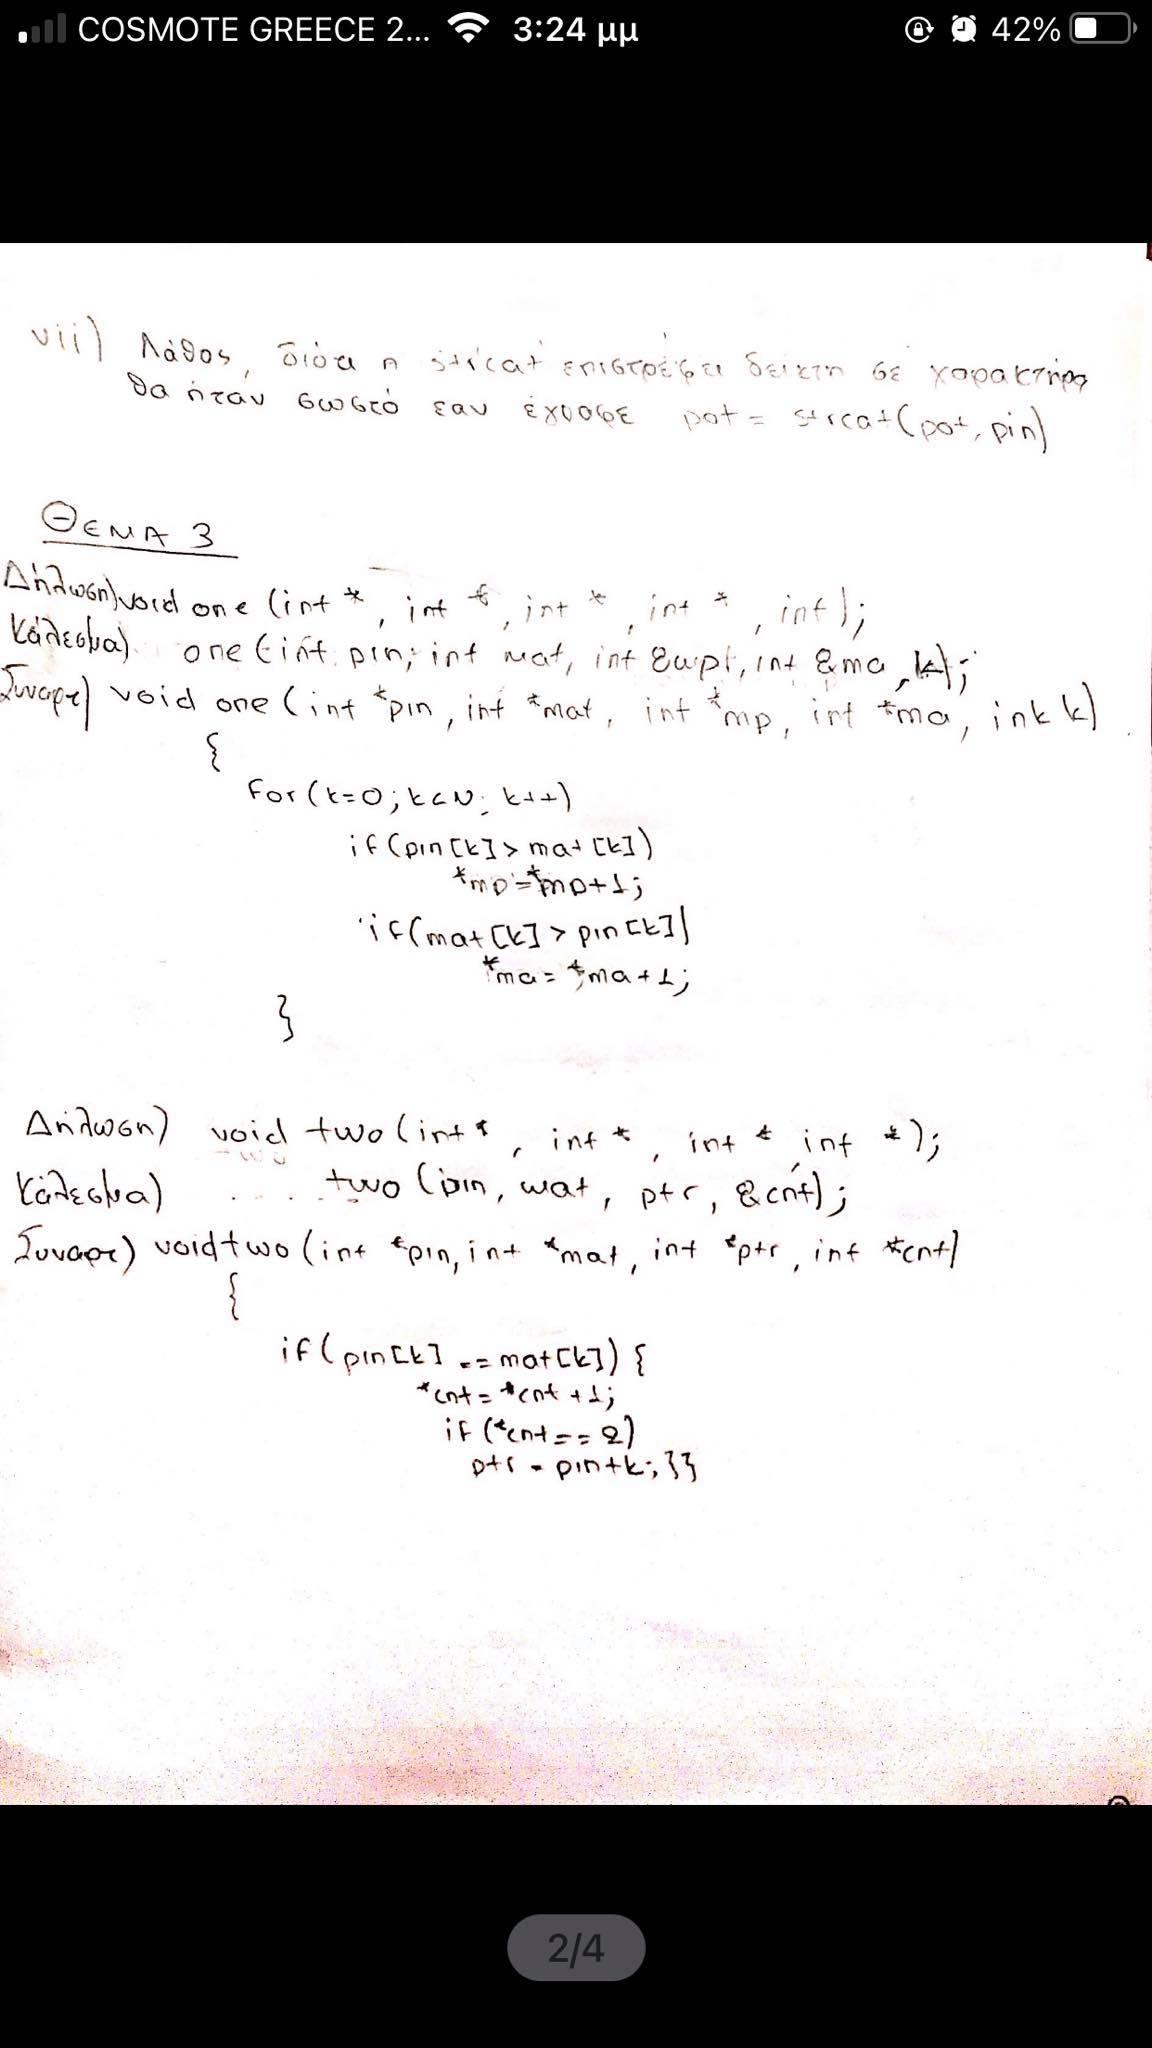 COSMOTE GREECE 2... 3:24 μμ 42%
vii) Λάθος, διότι η strcat επιστρέφει δείκτη σε χαρακτήρα
θα ήταν σωστό εαν έγραφε pot = strcat(pot, pin)
ΘΕΜΑ 3
Δήλωση) void one (int *, int *, int *, int *, int);
Κάλεσμα) one (int pin, int mat, int &mpi, int &ma, k);
Συναρτ) void one (int *pin, int *mat, int *mp, int *ma, ink k)
{
for(k=0; k<N; k++)
if(pin[k]> mat[k])
*mp=*mp+1;
if(mat[k] > pin[k])
*ma= *ma+1;
}
Δήλωση) void two (int *, int *, int * int *);
Κάλεσμα) two (pin, mat, ptr, &cnt);
Συναρτ) void two (int *pin, int *mat, int *ptr, int *cnt)
{
if(pin[k] == mat[k]) {
*cnt= *cnt +1;
if (*cnt==2)
ptr = pin+k; }}
2/4